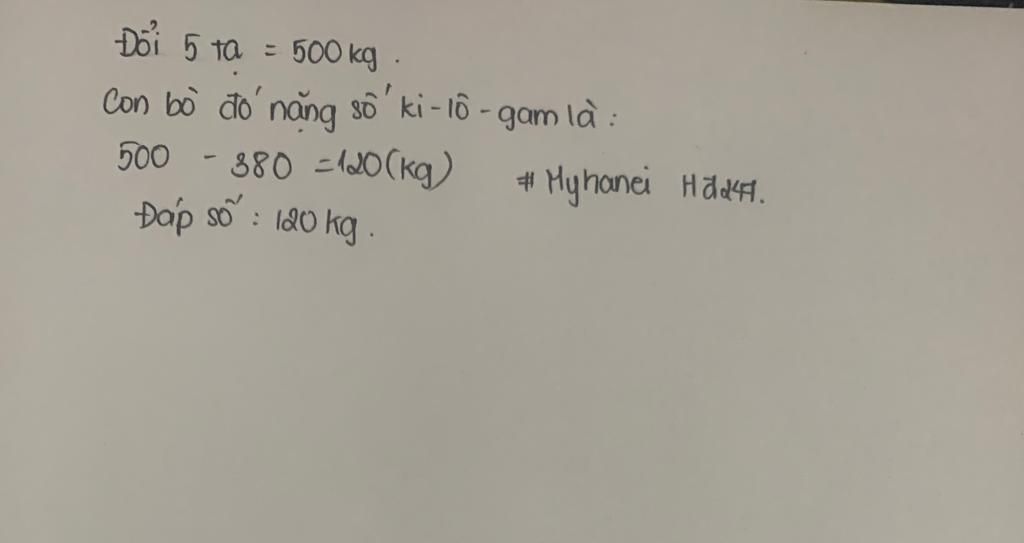 Đổi 5 tạ = 500 kg.
Con bò đó nặng số ki-lô-gam là:
500 - 380 = 120 (kg) # Myhanei Hđ247.
Đáp số: 120 kg.